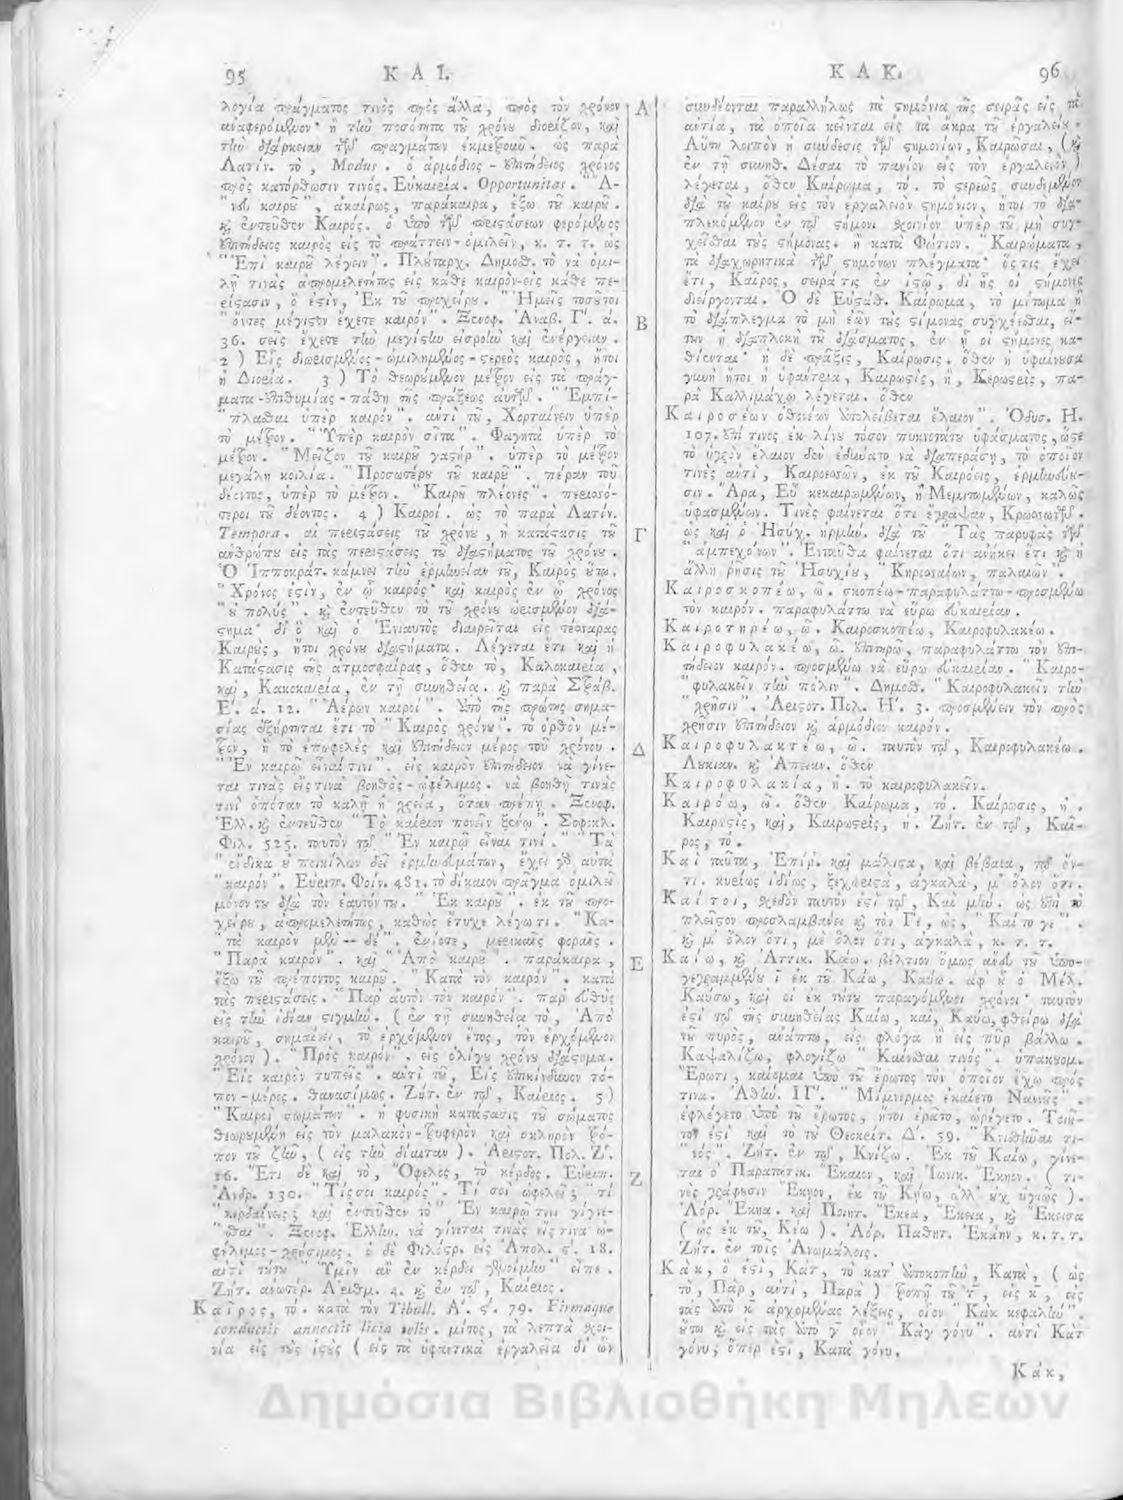 95 Κ Α Ι.
λογία πράγματος τινὸς πρὸς ἄλλα, πρὸς τὸν χρόνον
ἀναφερόμενον· ἢ τὴν ποσότητα τοῦ χρόνου διορίζον, καὶ
τὴν διάρκειαν τῶν πραγμάτων ἐκμετροῦν. ὡς παρὰ
Λατίν. τὸ, Modus. ὁ ἁρμόδιος - ἐπιτήδειος χρόνος
πρὸς κατόρθωσιν τινός. Εὐκαιρία. Opportunitas. "Ἄ-
"νευ καιροῦ", ἀκαίρως, παράκαιρα, ἔξω τοῦ καιροῦ.
καὶ ἐντεῦθεν Καιρός. ὁ ὑπὸ τῶν περιστάσεων φερόμενος
ἐπιτήδειος καιρὸς εἰς τὸ πράττειν - ὁμιλεῖν, κ. τ. τ. ὡς
"Ἐπὶ καιροῦ λέγειν". Πλούταρχ. Δημοσθ. τὸ νὰ ὁμι-
λῇ τινὰς ἀπρομελετήτως εἰς κάθε καιρὸν-εἰς κάθε πε-
ρίστασιν, ὅ ἐστιν, Ἐκ τοῦ προχείρου. "Ἡμεῖς τοσοῦτοι
"ὄντες μέγιστον ἔχετε καιρόν". Ξενοφ. Ἀναβ. Γ'. ά.
36. σεῖς ἔχετε τὴν μεγίστην εἰσροὴν καὶ ἐνέργειαν.
2) Εἷς διωρισμένος - ὡμιλημένος - στερεὸς καιρὸς, ἤτοι
ἡ Διορία. 3) Τὸ θεωρούμενον μέτρον εἰς τὰ πράγ-
ματα - ἐπιθυμίας - πάθη τῆς πράξεως αὐτῶν. "Ἐμπί-
"πλασθαι ὑπὲρ καιρόν". ἀντὶ τοῦ, Χορταίνειν ὑπὲρ
τὸ μέτρον. "Ὑπὲρ καιρὸν σῖτα". Φαγητὰ ὑπὲρ τὸ
μέτρον. "Μεῖζον τοῦ καιροῦ γαστήρ". ὑπὲρ τὸ μέτρον
μεγάλη κοιλία. "Προσωτέρω τοῦ καιροῦ". πέραν τοῦ
δέοντος, ὑπὲρ τὸ μέτρον. "Καιροῦ πλέονες". περισσό-
τεροι τοῦ δέοντος. 4) Καιροί. ὡς τὸ παρὰ Λατίν.
Tempora. αἱ περιστάσεις τοῦ χρόνου, ἡ κατάστασις τοῦ
ἀνθρώπου εἰς τὰς περιστάσεις τοῦ διαστήματος τοῦ χρόνου.
Ὁ Ἱπποκράτ. κάμνει τὴν ἑρμηνείαν του, Καιρὸς οὕτω.
"Χρόνος ἐστὶν, ἐν ᾧ καιρός· καὶ καιρὸς ἐν ᾧ χρόνος
"οὐ πολύς". καὶ ἐντεῦθεν τὸ τοῦ χρόνου ὡρισμένον διά-
στημα· δι' ὃ καὶ ὁ Ἐνιαυτὸς διαιρεῖται εἰς τέσσαρας
Καιρούς, ἤτοι χρόνου διαστήματα. Λέγεται ἔτι καὶ ἡ
Κατάστασις τῆς ἀτμοσφαίρας, ὅθεν τὸ, Καλοκαιρία,
καὶ, Κακοκαιρία, ἐν τῇ συνηθείᾳ. καὶ παρὰ Στράβ.
Ε'. ά. 12. "Ἀέρων καιροί". Ὑπὸ τῆς πρώτης σημα-
σίας ἐξήρτηται ἔτι τὸ "Καιρὸς χρόνου". τὸ ὀρθὸν μέ-
τρον, ἢ τὸ ἐπωφελὲς καὶ ἐπιτήδειον μέρος τοῦ χρόνου.
"Ἐν καιρῷ εἶναί τινι". εἰς καιρὸν ἐπιτήδειον νὰ γίνε-
ται τινὰς εἴς τινα βοηθὸς - ὠφέλιμος. νὰ βοηθῇ τινὰς
τινὶ ὁπόταν τὸ καλῇ ἡ χρεία, ὅταν πρέπῃ. Ξενοφ.
Ἑλλ. καὶ ἐντεῦθεν "Τὸ καίριον πονεῖν ξένῳ". Σοφοκλ.
Φιλ. 525. ταυτὸν τῷ "Ἐν καιρῷ εἶναι τινί. "Τὰ
"ἔνδικα οὐ ποικίλων δεῖ ἑρμηνευμάτων, ἔχει γὰρ αὐτὰ
"καιρόν". Εὐριπ. Φοίν. 481. τὸ δίκαιον πρᾶγμα ὁμιλεῖ
μόνον του διὰ τὸν ἑαυτόν του. "Ἐκ καιροῦ". ἐκ τοῦ προ-
χείρου, ἀπρομελετήτως, καθὼς ἔτυχε λέγω τι. "Κα-
"τὰ καιρὸν μὲν -- δὲ". ἐνίοτε, μερικαῖς φοραῖς.
"Παρὰ καιρόν". καὶ "Ἀπὸ καιροῦ". παράκαιρα,
ἔξω τοῦ πρέποντος καιροῦ. "Κατὰ τὸν καιρόν". κατὰ
τὰς περιστάσεις. "Παρ' αὐτὸν τὸν καιρόν". παρ' εὐθὺς
εἰς τὴν ἰδίαν στιγμήν. (ἐν τῇ συνηθείᾳ τὸ, Ἀπὸ
καιροῦ, σημαίνει, τὸ ἐρχόμενον ἔτος, τὸν ἐρχόμενον
χρόνον). "Πρὸς καιρόν". εἰς ὀλίγου χρόνου διάστημα.
"Εἰς καιρὸν τυπείς". ἀντὶ τοῦ, Εἰς ἐπικίνδυνον τό-
πον - μέρος. θανασίμως. Ζήτ. ἐν τῷ, Καίριος. 5)
"Καιροὶ σωμάτων". ἡ φυσικὴ κατάστασις τοῦ σώματος
θεωρουμένη εἰς τὸν μαλακὸν - τρυφερὸν καὶ σκληρὸν τρό-
πον τοῦ ζῆν, (εἰς τὴν δίαιταν). Ἀριστοτ. Πολ. Ζ'.
16. Ἔτι δὲ καὶ τὸ, Ὄφελος, τὸ κέρδος. Εὐριπ.
Ἀνδρ. 130. "Τίς σοι καιρός". Τί σοὶ ὠφελεῖ; τί
"κερδαίνεις; καὶ ἐντεῦθεν τὸ "Ἐν καιρῷ τινι γίγνε-
"σθαι". Ξενοφ. Ἑλλην. νὰ γίνεται τινὰς εἴς τινα ὠ-
φέλιμος - χρήσιμος. ὁ δὲ Φιλόστρ. εἰς Ἀπολ. ς'. 18.
ἀντὶ τούτου "Ὑμῖν ἂν ἐν κέρδει γενοίμην" εἶπε.
Ζήτ. ἀνωτέρ. Ἀριθμ. 4. καὶ ἐν τῷ, Καίριος.
Καῖρος, το. κατὰ τὸν Tibull. Α'. ς'. 79. Firmaque
conductis annectis licia telis. μίτος, τὰ λεπτὰ σχοι-
νία εἰς τοὺς ἱστοὺς (εἰς τὰ ὑφαντικὰ ἐργαλεῖα δι' ὧν
Α
Β
Γ
Δ
Ε
Ζ
Κ Α Κ. 96
συνδέονται παραλλήλως τὰ στημόνια τῆς σειρᾶς εἰς τὰ
ἀντία, τὰ ὁποῖα κεῖνται εἰς τὰ ἄκρα τοῦ ἐργαλείου.
Αὕτη λοιπὸν ἡ σύνδεσις τῶν στημονίων, Καιρῶσαι, (καὶ
ἐν τῇ συνηθ. Δέσαι τὸ πανίον εἰς τὸν ἐργαλειὸν)
λέγεται, ὅθεν Καίρωμα, τό. τὸ στερεῶς συνδεμένον
διὰ τοῦ καίρου εἰς τὸν ἐργαλειὸν στημόνιον, ἤτοι τὸ δια-
πλεκόμενον ἐν τῷ στήμονι σχοινίον ὑπὲρ τοῦ μὴ συγ-
χεῖσθαι τοὺς στήμονας. ἢ κατὰ Φώτιον. "Καιρώματα,
τὰ διαχωρητικὰ τῶν στημόνων πλέγματα· ὅς τις ἔχει
ἔτι, Καῖρος, σειρά τις ἐν ἱστῷ, δι' ἧς οἱ στήμονες
διείργονται. Ὁ δὲ Εὐστάθ. Καίρωμα, τὸ μίτωμα ἢ
τὸ διάπλεγμα τὸ μὴ ἐῶν τοὺς στήμονας συγχέεσθαι, εἴ-
τουν ἡ διαπλοκὴ τοῦ διάσματος, ἐν ᾗ οἱ στήμονες κα-
θίενται· ἡ δὲ πρᾶξις, Καίρωσις. ὅθεν ἡ ὑφαίνουσα
γυνὴ ἤτοι ἡ ὑφάντρια, Καιρωστὶς, ἢ, Κερωστρὶς, πα-
ρὰ Καλλιμάχῳ λέγεται. ὅθεν
Καιροσέων ὀθονέων ἀπολείβεται ἔλαιον". Ὀδυσ. Η.
107. ἐπί τινος ἐκ λίνου τόσον πυκνοτάτου ὑφάσματος, ὥστε
τὸ ὑγρὸν ἔλαιον δὲν ἐδύνατο νὰ διαπεράσῃ, τὸ ὁποῖον
τινὲς ἀντὶ, Καιροεσσῶν, ἐκ τοῦ Καιρόεις, ἑρμηνεύου-
σιν. Ἄρα, Εὖ κεκαιρωμένων, ἢ Μεμιτωμένων, καλῶς
ὑφασμένων. Τινὲς φαίνεται ὅτι ἔγραψαν, Κρωσσωτῶν.
ὡς καὶ ὁ Ἡσύχ. ἡρμήν. διὰ τοῦ "Τὰς παρυφὰς τῶν
"ἀμπεχόνων". Ἐνταῦθα φαίνεται ὅτι ἀνήκει ἔτι καὶ ἡ
ἄλλη ῥῆσις τοῦ Ἡσυχίου, "Κηριοσσίων, παλαιῶν".
Καιροσκοπέω, ῶ. σκοπέω - παραφυλάττω - προσμένω
τὸν καιρόν. παραφυλάττω νὰ εὕρω εὐκαιρίαν.
Καιροτηρέω, ῶ. Καιροσκοπέω, Καιροφυλακέω.
Καιροφυλακέω, ῶ. ἐπιτηρῶ, παραφυλάττω τὸν ἐπι-
τήδειον καιρόν. προσμένω νὰ εὕρω εὐκαιρίαν. "Καιρο-
"φυλακεῖν τὴν πόλιν". Δημοσθ. "Καιροφυλακεῖν τὴν
"χρῆσιν". Ἀριστοτ. Πολ. Η'. 3. προσμένειν τὸν πρὸς
χρῆσιν ἐπιτήδειον καὶ ἁρμόδιον καιρόν.
Καιροφυλακτέω, ῶ. ταυτὸν τῷ, Καιροφυλακέω.
Λουκιαν. καὶ Ἀππιαν. ὅθεν
Καιροφυλακία, ἡ. τὸ καιροφυλακεῖν.
Καιρόω, ῶ. ὅθεν Καίρωμα, τό. Καίρωσις, ἡ.
Καιρωστὶς, καὶ, Καιρωστρὶς, ἡ. Ζήτ. ἐν τῷ, Καῖ-
ρος, τό.
Καὶ ταῦτα, Ἐπίρ. καὶ μάλιστα, καὶ βέβαια, τῷ ὄν-
τι. κυρίως ἰδίως, ξεχωριστὰ, ἀγκαλὰ, μ' ὅλον ὅτι.
Καίτοι, σχεδὸν ταυτόν ἐστι τῷ, Καὶ μήν. ὡς ἐπὶ τὸ
πλεῖστον προσλαμβάνει καὶ τὸν Γὲ, ὡς, "Καί το γε".
καὶ μ' ὅλον ὅτι, μὲ ὅλον ὅτι, ἀγκαλὰ, κ. τ. τ.
Καίω, καὶ Ἀττικ. Κάω. βέλτιον ὅμως ἄνευ τοῦ ὑπο-
γεγραμμένου ϊ ἐκ τοῦ Κάω, Καύω. ἀφ' οὗ ὁ Μέλ.
Καύσω, καὶ οἱ ἐκ τούτου παραγόμενοι χρόνοι· ταυτόν
ἐστι τῷ τῆς συνηθείας Καίω, καὶ, Καύω, φθείρω διὰ
τοῦ πυρὸς, ἀνάπτω, εἰς φλόγα ἢ εἰς πῦρ βάλλω.
Καψαλίζω, φλογίζω "Καίεσθαι τινός". ὑπακουομ.
Ἔρωτι, καίομαι ὑπὸ τοῦ ἔρωτος τὸν ὁποῖον ἔχω πρός
τινα. Ἀθήν. ΙΓ'. "Μίμνερμος ἐκαίετο Ναννοῦς".
ἐφλέγετο ὑπὸ τοῦ ἔρωτος, ἤτοι ἐρᾶτο, ὠρέγετο. Τοιοῦ-
τόν ἐστι καὶ τὸ τοῦ Θεοκρίτ. Δ'. 59. "Κνισθῆναι τι-
"νός". Ζήτ. ἐν τῷ, Κνίζω. Ἐκ τοῦ Καίω, γίνε-
ται ὁ Παρατατικ. Ἔκαιον, καὶ Ἰωνικ. Ἔκηον. (τι-
νὲς γράφουσιν Ἔκηον, ἐκ τοῦ Κήω, ἀλλ' οὐχ ὑγιῶς).
Ἀόρ. Ἔκηα. καὶ Ποιητ. Ἔκεα, Ἔκεια, καὶ Ἔκεισα
(ὡς ἐκ τοῦ, Κέω). Ἀόρ. Παθητ. Ἐκάην, κ. τ. τ.
Ζήτ. ἐν τοῖς Ἀνωμάλοις.
Κὰκ, ὅ ἐστι, Κὰτ, τὸ κατ' ἀποκοπὴν, Κατὰ, (ὡς
τὸ, Πὰρ, ἀντὶ, Παρὰ) τροπῇ τοῦ τ, εἰς κ, εἰς
τὰς ἀπὸ κ ἀρχομένας λέξεις, οἷον "Κὰκ κεφαλήν".
οὕτω καὶ εἰς τὰς ἀπὸ γ οἷον "Κὰγ γόνυ". ἀντὶ Κὰτ
γόνυ; ὅπερ ἐστὶ, Κατὰ γόνυ.
Κάκ,
Δημόσια Βιβλιοθήκη Μηλεών